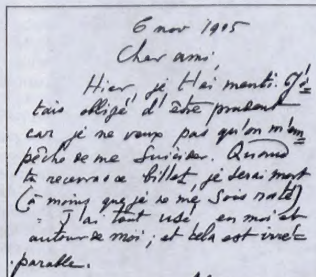 6 nov 1905
Cher ami,
Hier, je t'ai menti. J'é-
tais obligé d'être prudent
car je ne veux pas qu'on m'em
pêche de me suicider. Quand
tu recevras ce billet, je serai mort
(à moins que je ne me sois raté)
J'ai tout usé, en moi et
autour de moi ; et cela est irré-
parable.